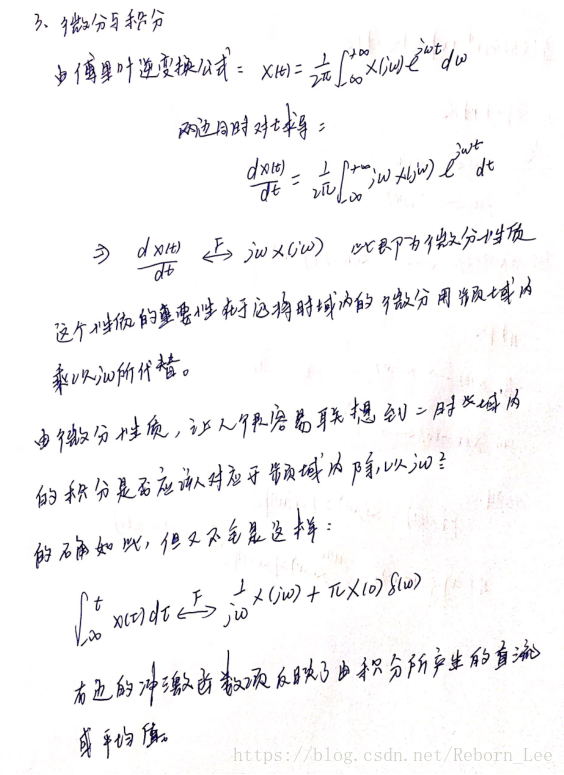 3、微分与积分
由傅里叶逆变换公式: x(t)=\frac{1}{2π}∫_{-∞}^{+∞}X(jω)e^{jωt}dω
两边同时对t求导:
\frac{dx(t)}{dt}=\frac{1}{2π}∫_{-∞}^{+∞}jωX(jω)e^{jωt}dt
⇒ \frac{dx(t)}{dt} \overset{F}{↔} jωX(jω) 此即为微分性质
这个性质的重要性在于它将时域内的微分用频域内
乘以jω所代替。
由微分性质,让人很容易联想到:时域内
的积分是否应该对应于频域内除以jω?
的确如此,但又不全是这样:
∫_{-∞}^{t}x(τ)dτ \overset{F}{↔} \frac{1}{jω}X(jω)+πX(0)δ(ω)
右边的冲激函数项反映了由积分所产生的直流
或平均值。
https://blog.csdn.net/Reborn_Lee